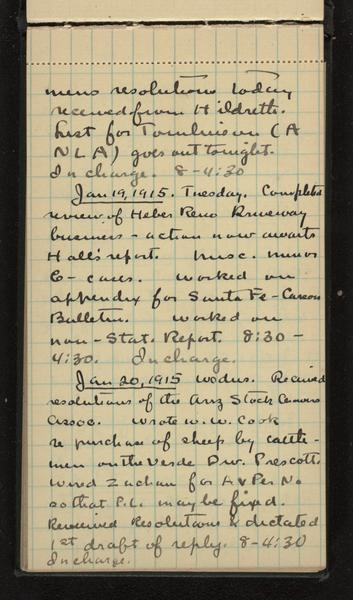 mens resolutions today
received from Hildreth.
List for Tomlinson (A
N L A) goes out tonight.
In charge. 8-4:30
Jan 19, 1915. Tuesday. Completed
review of Heber Reno Driveway
business - action now awaits
Hall's report. Misc. minor
G- cases. Worked on
appendix for Santa Fe - Carson
Bulletin. Worked on
non-Stat. Report. 8:30 -
4:30. In charge.
Jan 20, 1915 Wednes. Received
resolutions of the Ariz Stock Growers
Assoc. Wrote W. W. Cook
re purchase of sheep by cattle-
men on the Verde Div. Prescott.
Wired Zachau for A & Per No.
so that P.L. may be fixed.
Received Resolutions & dictated
1st draft of reply. 8-4:30
In charge.